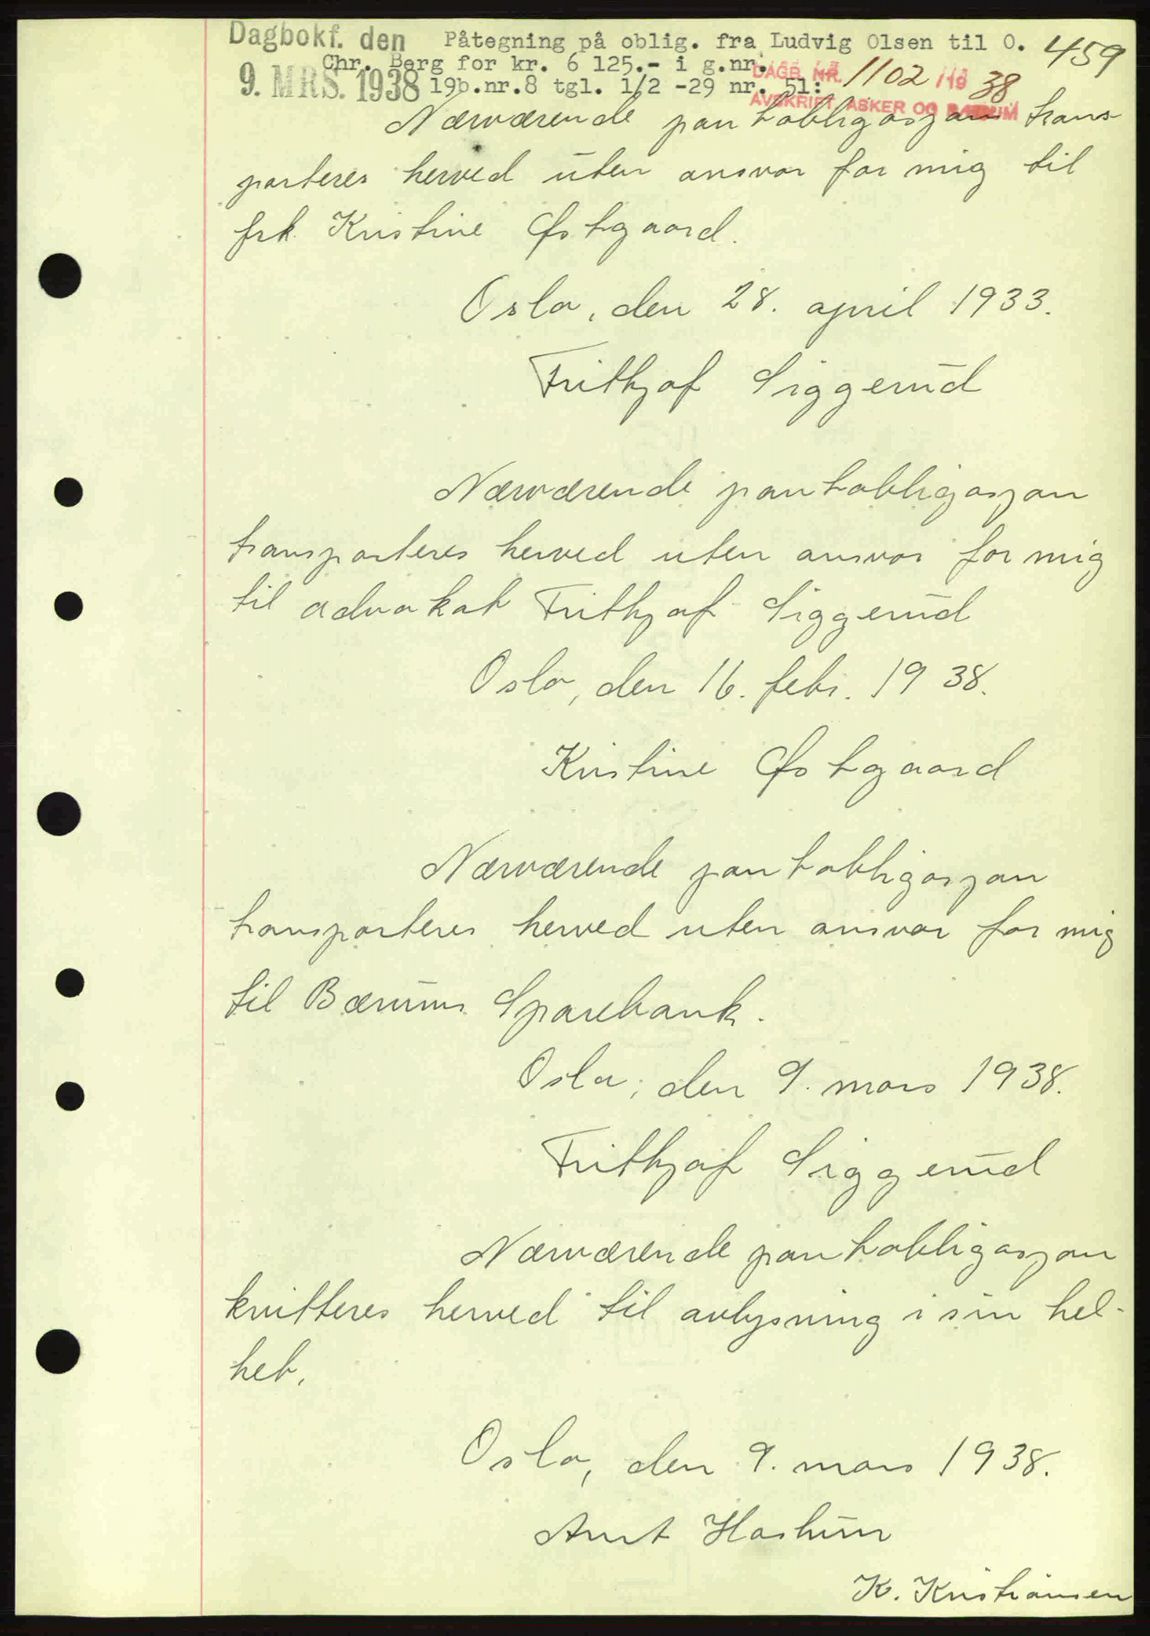 Dagbokf. den Påtegning på oblig. fra Ludvig Olsen til O. 459
Chr. Berg for kr. 6 125.- i g.nr. DAGB. NR. 1102 /19 38
9. MRS. 1938 19b.nr.8 tgl. 1/2 -29 nr. 51:
AVSKRIFT, ASKER OG BÆRUM
Nærværende pantobligasjon trans-
porteres herved uten ansvar for mig til
frk. Kristine Østgaard.
Oslo, den 28. april 1933.
Frithjof Siggerud
Nærværende pantobligasjon
transporteres herved uten ansvar for mig
til advokat Frithjof Siggerud
Oslo, den 16. febr. 1938.
Kristine Østgaard
Nærværende pantobligasjon
transporteres herved uten ansvar for mig
til Bærums Sparebank.
Oslo, den 9. mars 1938.
Frithjof Siggerud
Nærværende pantobligasjon
kvitteres herved til avlysning i sin hel-
het.
Oslo, den 9. mars 1938.
Arnt Haslum
K. Kristiansen